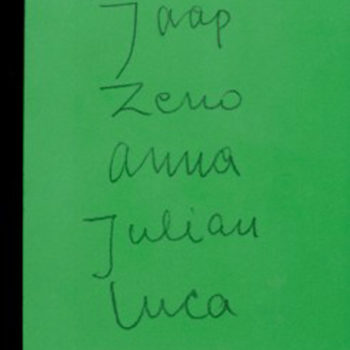 Jaap
Zeno
anna
Julian
Luca